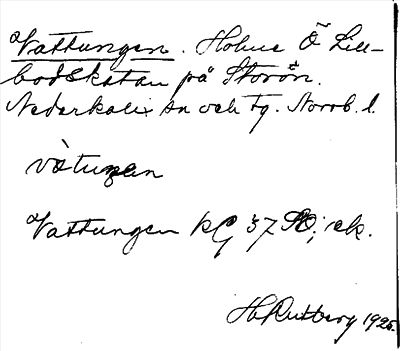 Vattungen. Holme Ö Lill-
bådskatan på Storön.
Nederkalix sn och tg. Norrb. l.
vàtuŋen
Vattungen kG 37 SO; ek.
H. Rutberg 1925.